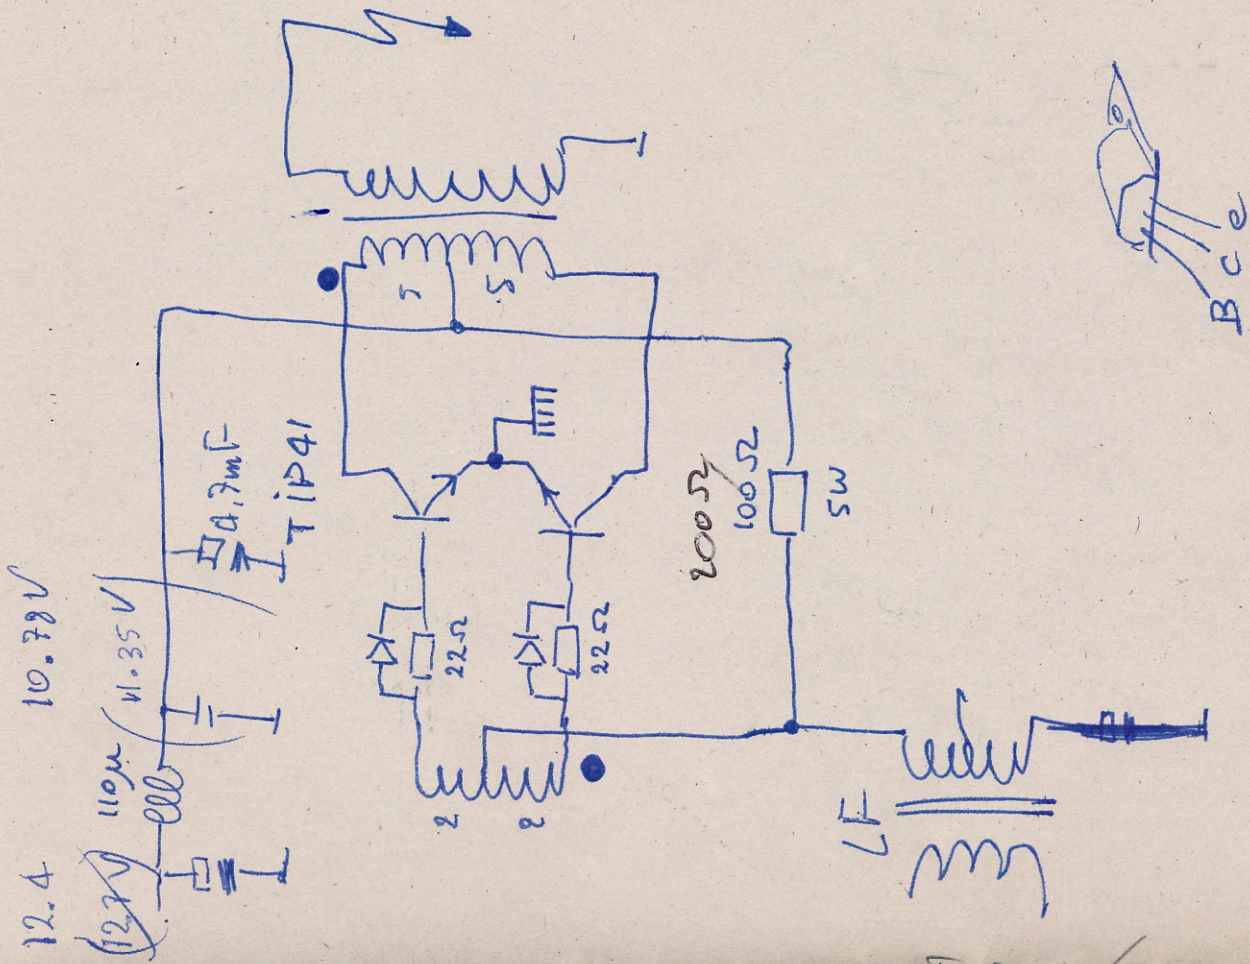 12.4
(12.7V)
10.78V
110µ
11.35V
4,7mF
TiP41
5
5
22Ω
22Ω
2
2
200Ω
100Ω
5W
LF
B C e